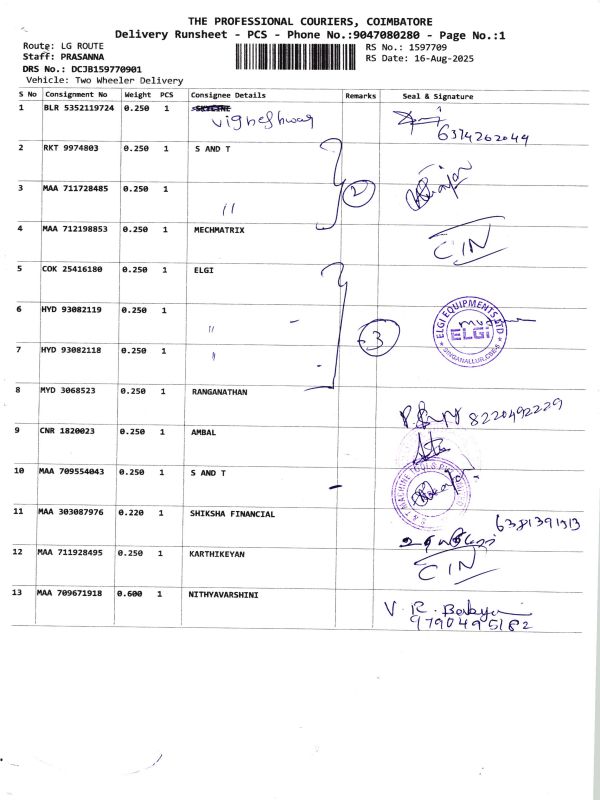 THE PROFESSIONAL COURIERS, COIMBATORE
Delivery Runsheet - PCS - Phone No.:9047080280 - Page No.:1
Route: LG ROUTE RS No.: 1597709
Staff: PRASANNA RS Date: 16-Aug-2025
DRS No.: DCJB159770901
Vehicle: Two Wheeler Delivery
S No Consignment No Weight PCS Consignee Details Remarks Seal & Signature
1 BLR 5352119724 0.250 1 Vigneshwar 6374262044
2 RKT 9974803 0.250 1 S AND T
3 MAA 711728485 0.250 1 " 2
4 MAA 712198853 0.250 1 MECHMATRIX CIN
5 COK 25416180 0.250 1 ELGI
6 HYD 93082119 0.250 1 " ELGI EQUIPMENTS LTD ELGI SINGANALLUR, CBE-5
7 HYD 93082118 0.250 1 " 3
8 MYD 3068523 0.250 1 RANGANATHAN 8220492229
9 CNR 1820023 0.250 1 AMBAL
10 MAA 709554043 0.250 1 S AND T S & T MACHINE TOOLS
11 MAA 303087976 0.220 1 SHIKSHA FINANCIAL 6381391313
12 MAA 711928495 0.250 1 KARTHIKEYAN CIN
13 MAA 709671918 0.600 1 NITHYAVARSHINI V. R.
9790495182